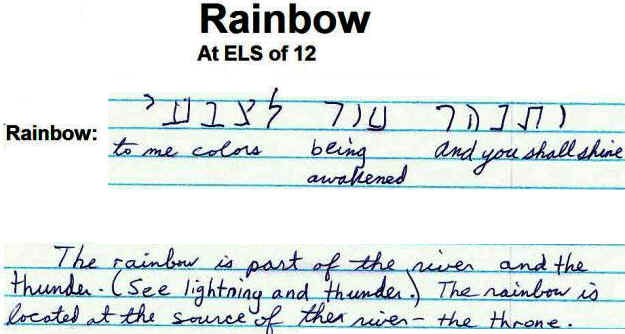 Rainbow
At ELS of 12
Rainbow:
ותנהר עור לצבעי
to me colors being and you shall shine
awakened
The rainbow is part of the river and the
thunder. (See lightning and thunder.) The rainbow is
located at the source of ther river – the throne.